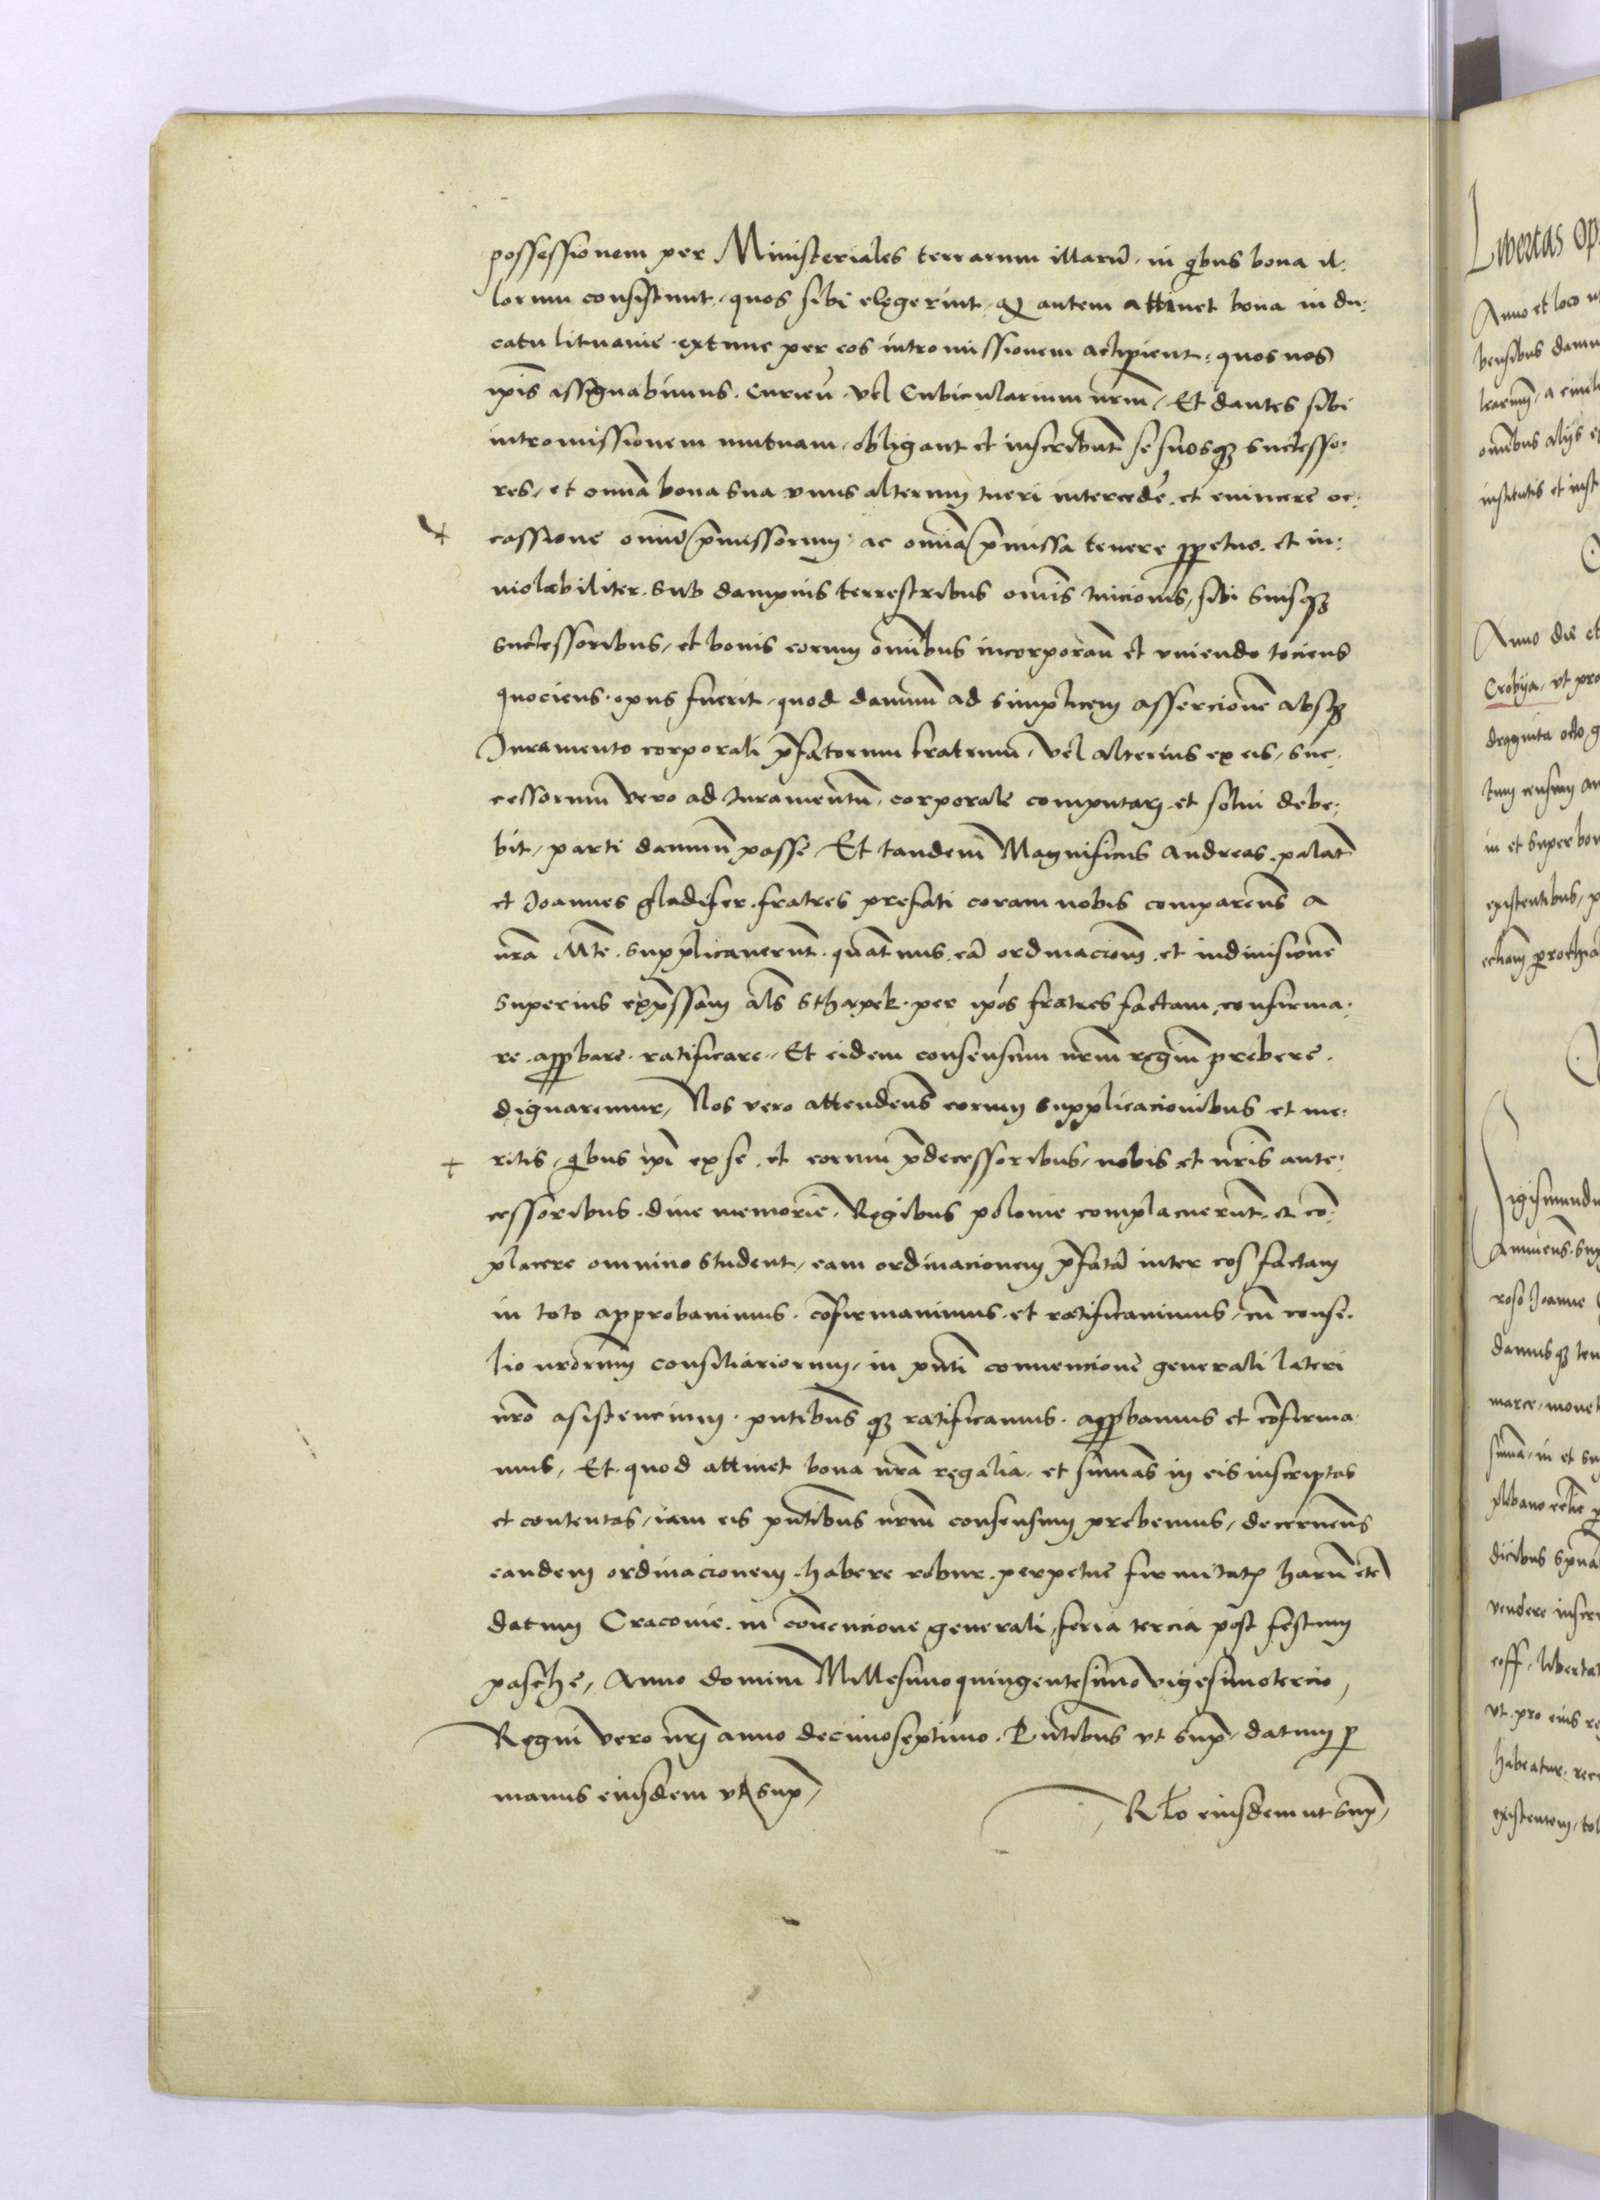 possessionem per Ministeriales terrarum illarū in qibus bona il:
lorum consistunt, quos sibi elegerint, qd autem attinet bona in du:
catu lituanie extunc per eos intromissionem accipient, quos nos
ipīs assignabimus. Curieñ vel Cubicularium nrm̄, Et dantes sibi
intromissionem mutuam, obligant et inscribunt se suosq3 successo:
res, et omīa bona sua vnus alterum tueri intercedē, et euincere oc:
cassione omniū p̄missorum, ac omīa p̄missa tenere ppetuo et in:
uiolabiliter. Sub dampnis terrestribus om̄is tuicionis, sibi suisq3
successoribus, et bonis eorum om̄ibus incorporañ et vniendo tociens
quociens opus fuerit, quod damnū ad simplicem assercionē absq3
Juramento corporali p̄fatorum fratrum, vel alterius ex eis, suc:
cessorum vero ad Juramentū corporale computari et solui debe:
bit, parti damnū passe, Et tandem Magnificus Andreas palat̄
et Joannes gladifer fratres prefati coram nobis comparens̄ a
nrā Mte supplicauerunt quatnus eā ordinacionem et indiuisionē
superius exp̄ssam als̄ Sthapek per ipōs fratres factam confirma:
re, appbare ratificare, Et eidem consensum nrm̄ regiū prebere
dignaremur, Nos vero attendens̄ eorum supplicacionibus et me:
ritis, qibus ipī ex se et eorum p̄decessoribus, nobis et nrīs ante:
cessoribus diue memorie, Regibus polonie complacuerūt et cō:
placere omnino student, eam ordinacionem p̄fatā inter eos factam
in toto approbauimus, cōfirmauimus et ratificauimus, cū consi:
lio nrōrum consiliariorum, in pn̄ti conuencione generali lateri
nrō asistencium, pn̄tibusq3 ratificamus, appbamus et cōfirma
mus, Et quod attinet bona nrā regalia, et sum̄as in eis inscriptas
et contentas, iam eis pn̄tibus nrm̄ consensum prebemus, decernens̄
eandem ordinacionem habere robur perpetue firmitatis harū etc̄
datum Cracouie in cōuencione generali, feria tercia post festum
pasche, Anno domini Millesimoquingentesimo vigesimotercio,
Regni vero nrī anno decimoseptimo. Pn̄tibus vt sup̄ datum p
manus eiusdem vt sup̄,
Rlo eiusdem ut sup̄,
Libertas
Anno et loco
omībus alijs
Anno die et
Crobya, vt pro
in et super bon
existentibus, p
Sigismundu
roso Joanne
damusq3 ten
vendere inscri
vt pro eius re
existentem, tol